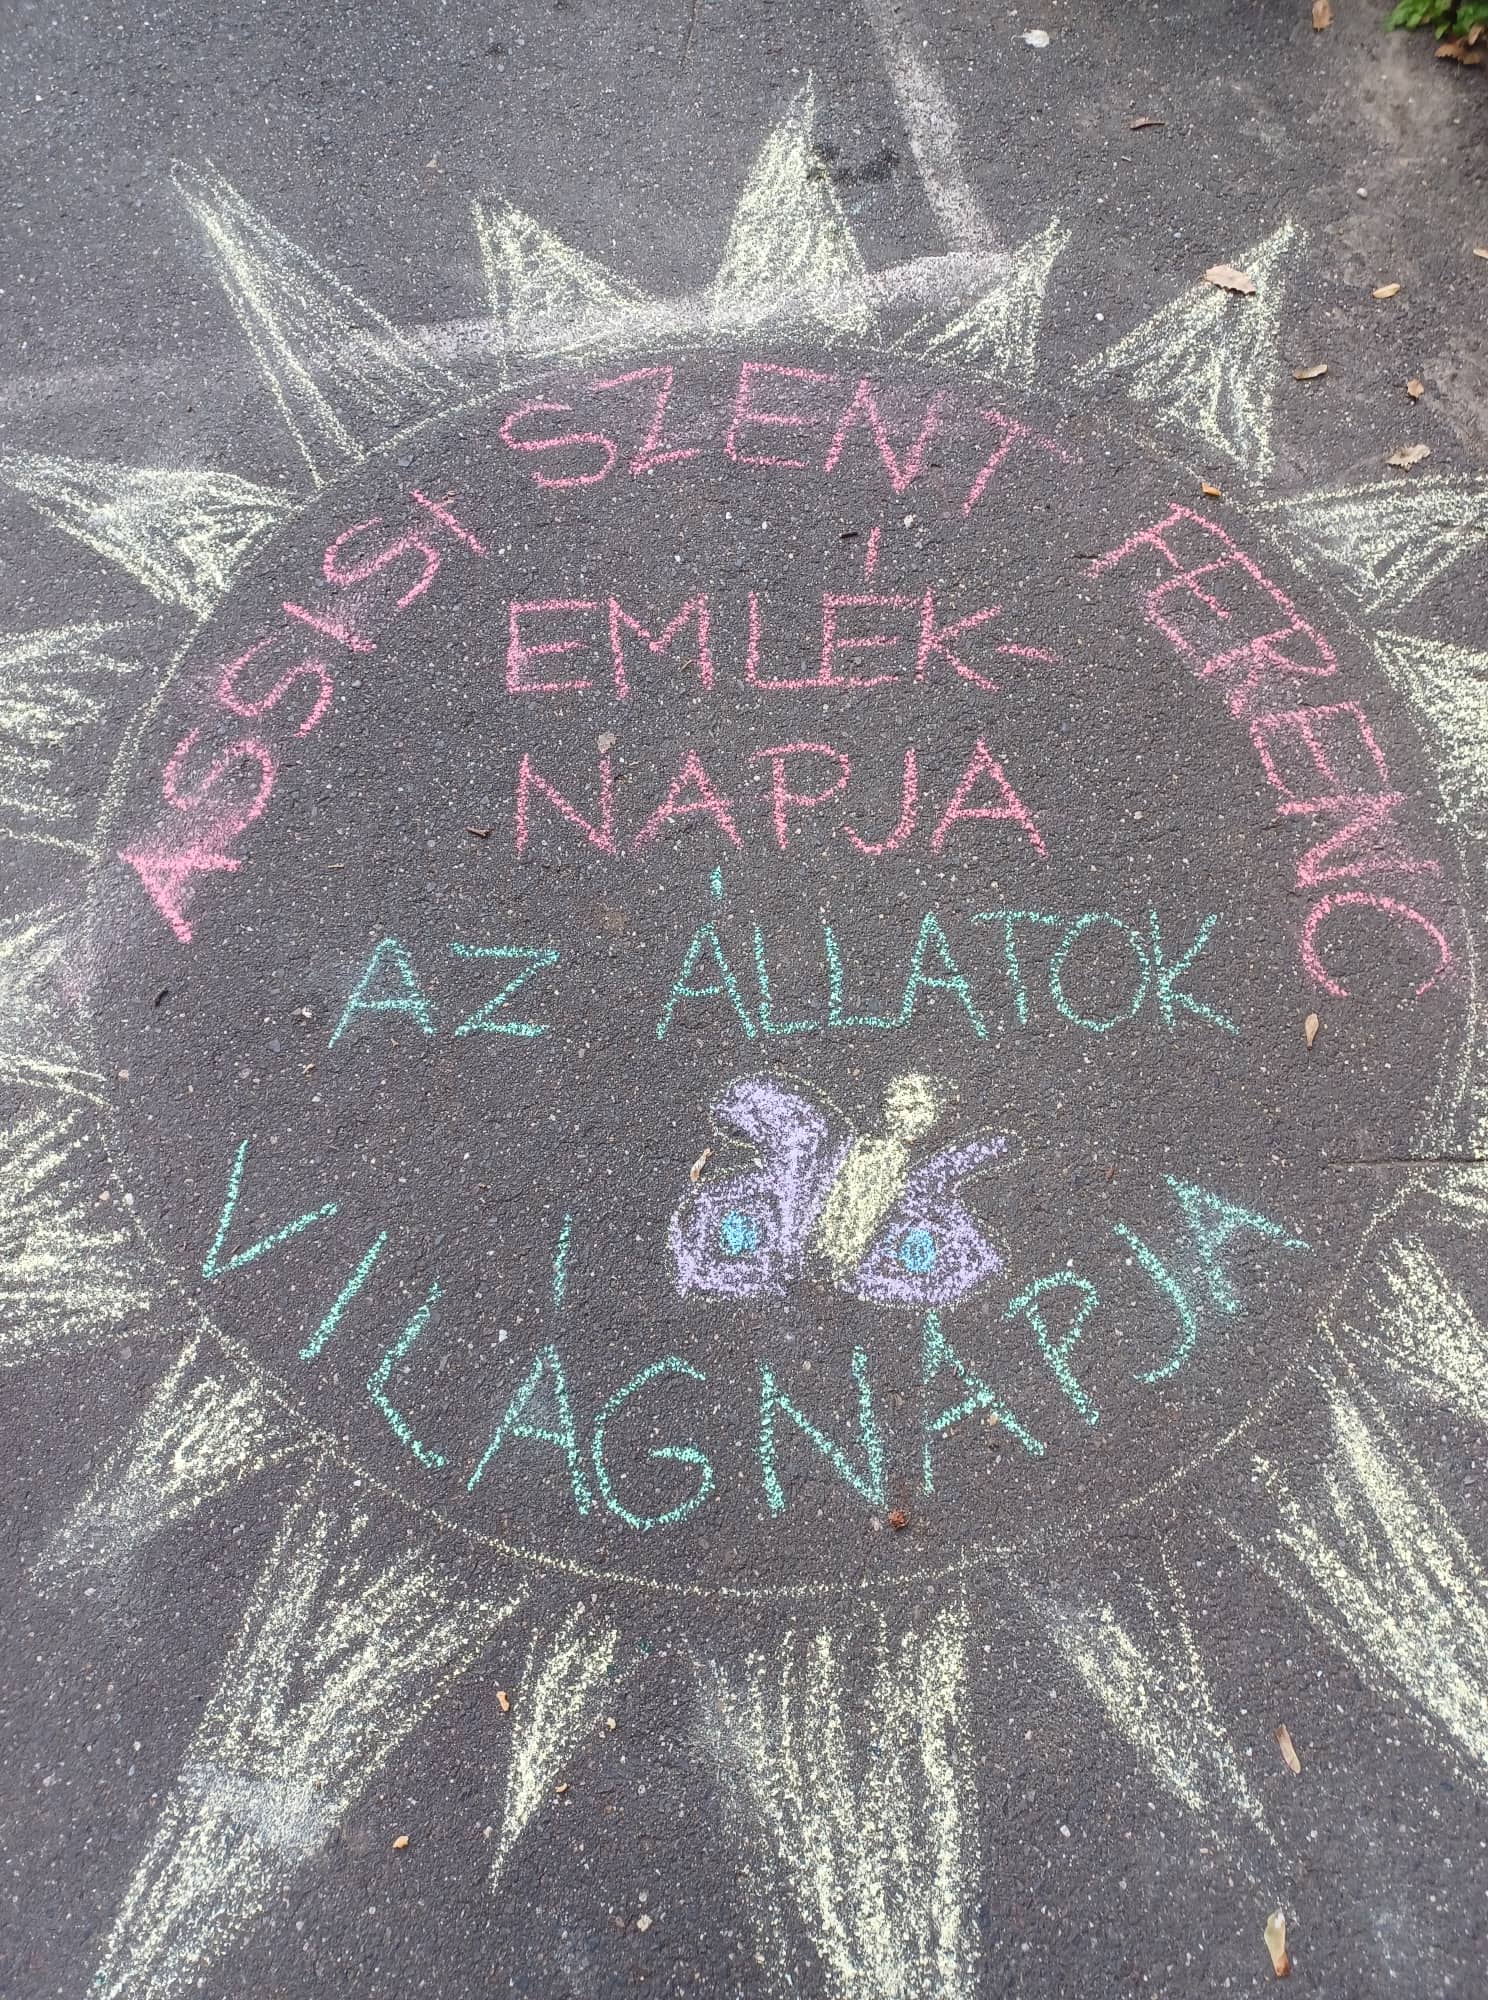 ASSISI SZENT FERENC
EMLÉK-
NAPJA
AZ ÁLLATOK
VILÁGNAPJA